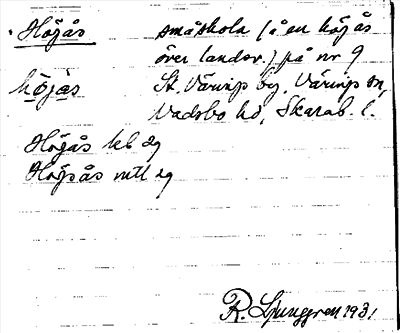 Höjås småskola (å en höjås
över landsv.) på nr 9
höjås St. Väring by, Väring sn,
Vadsbo hd, Skarab. l.
Höjås kb äg
Höjsås mtl äg
R. Ljunggren 1931